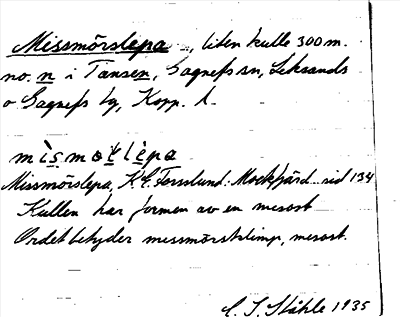 Missmörslepa, liten kulle 300 m.
no. n i Tansen, Gagnefs sn, Leksands
o Gagnefs tg, Kopp. l.
Missmörslepa, K. E. Forsslund. Mockfjärd sid 134
Kullen har formen av en mesost
Ordet betyder messmörsklimp, mesost.
C. I. Ståhle 1935